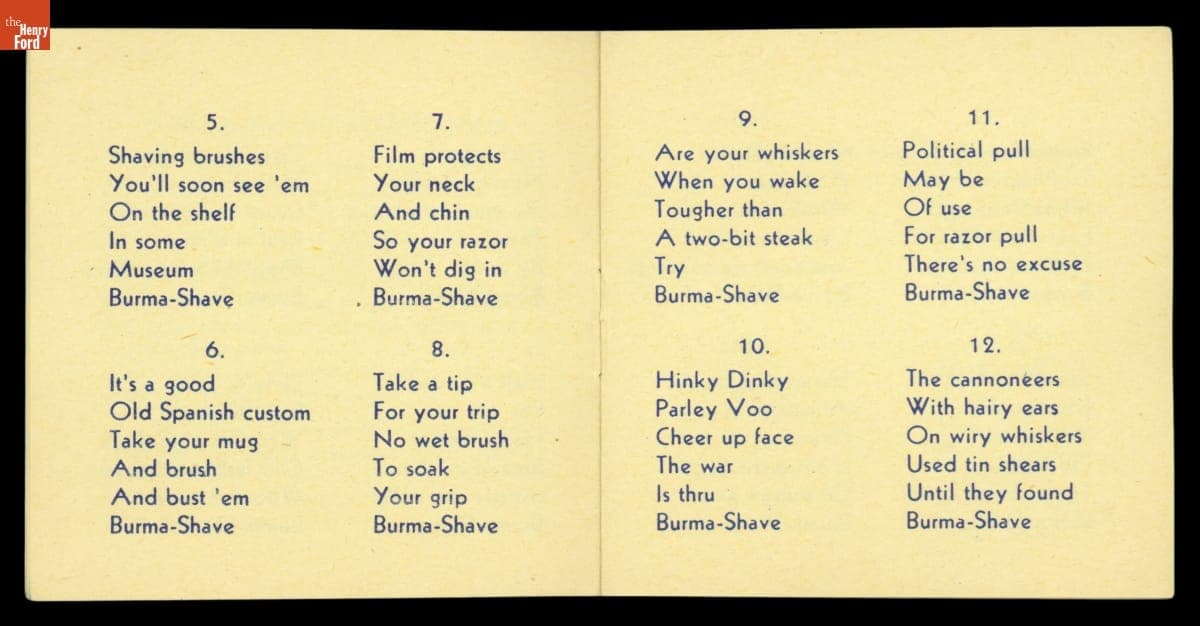 the
Henry
Ford
5.
Shaving brushes
You'll soon see 'em
On the shelf
In some
Museum
Burma-Shave
6.
It's a good
Old Spanish custom
Take your mug
And brush
And bust 'em
Burma-Shave
7.
Film protects
Your neck
And chin
So your razor
Won't dig in
Burma-Shave
8.
Take a tip
For your trip
No wet brush
To soak
Your grip
Burma-Shave
9.
Are your whiskers
When you wake
Tougher than
A two-bit steak
Try
Burma-Shave
10.
Hinky Dinky
Parley Voo
Cheer up face
The war
Is thru
Burma-Shave
11.
Political pull
May be
Of use
For razor pull
There's no excuse
Burma-Shave
12.
The cannoneers
With hairy ears
On wiry whiskers
Used tin shears
Until they found
Burma-Shave